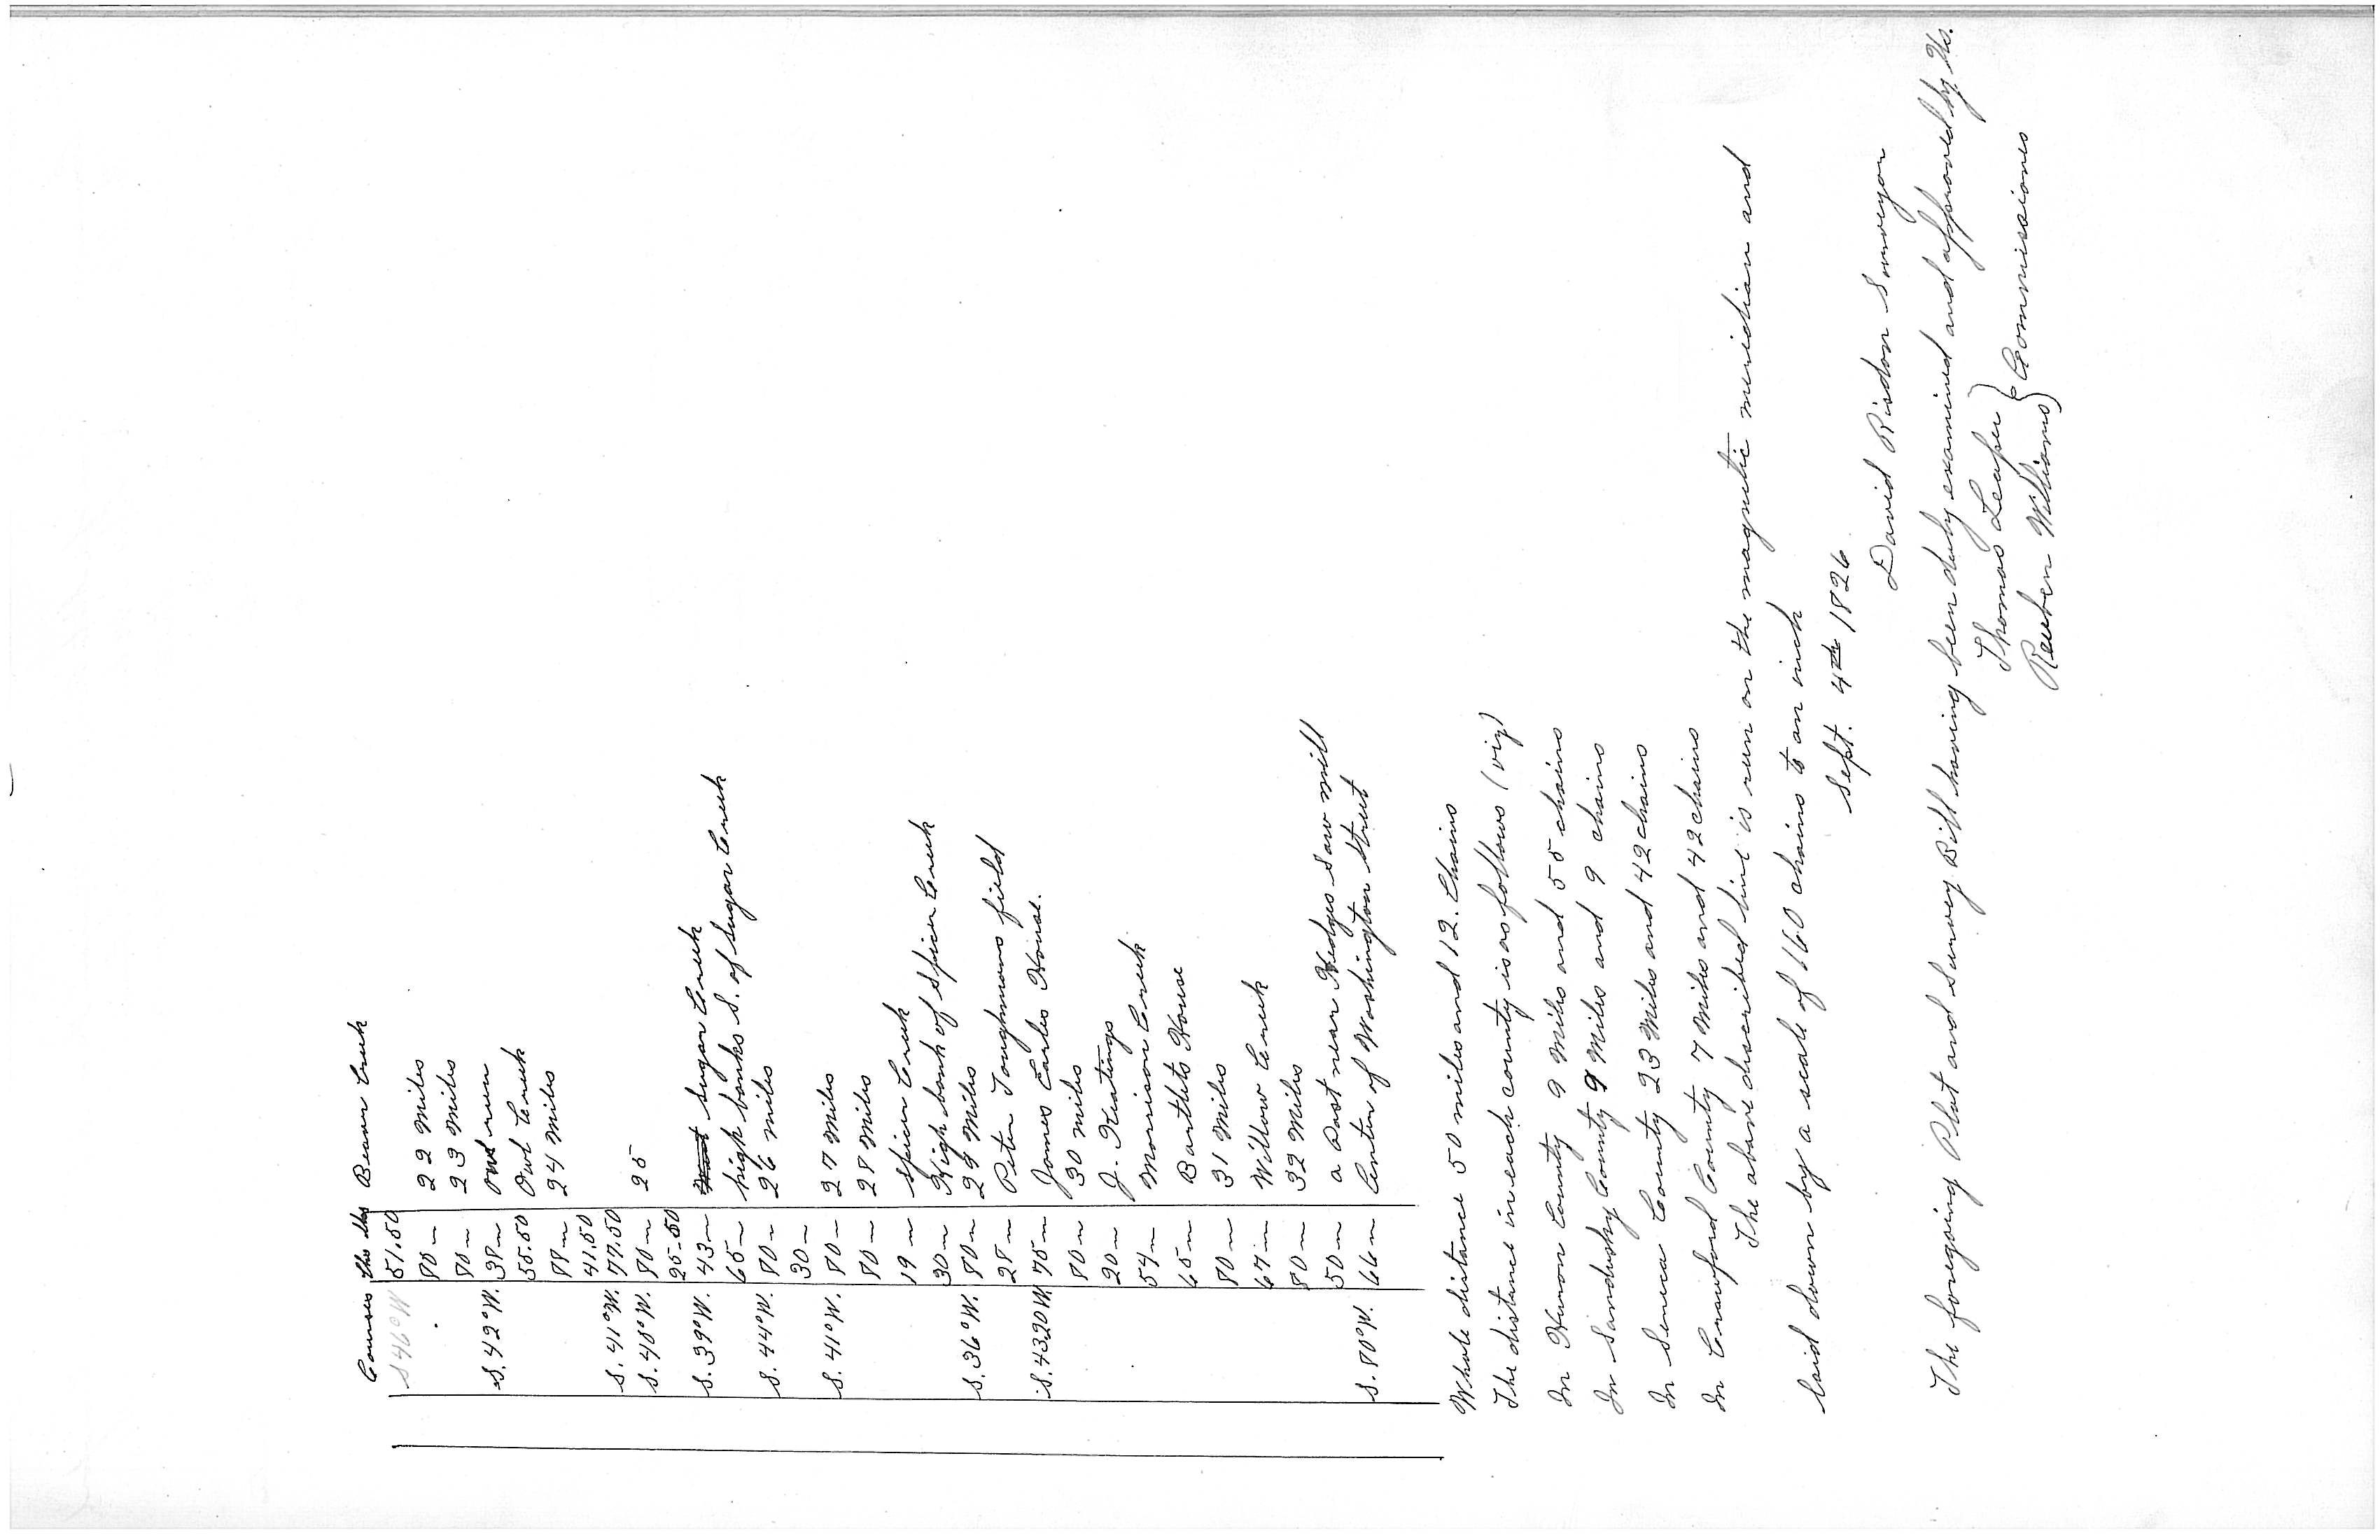 Courses Chs Lks Beaver Creek
S 46° W 51.50
80 — 22 Miles
80 — 23 Miles
S. 42° W. 38 — Owl run
55.50 Owl Creek
88 — 24 Miles
41.50
S. 41° W. 77.50
S. 48° W. 80 — 25
25.50
S. 39° W. 43 — Sugar Creek
65 — high banks S. of Sugar Creek
S. 44° W. 80 — 26 miles
30 —
S. 41° W. 80 — 27 Miles
80 — 28 Miles
19 — Spicer Creek
30 — High bank of Spicer Creek
S. 36° W. 80 — 29 Miles
28 — Peter Toughmans field
S. 43.20 W 75 — James Earles House.
80 — 30 miles
20 — J. Keatings
54 — Morrison Creek
65 — Bartlets House
80 — 31 Miles
67 — Willow Creek
80 — 32 Miles
50 — a Post near Hedges Saw mill
S. 80° W. 66 — Center of Washington Street
Whole distance 50 miles and 12. Chains
The distance in each county is as follows (viz)
In Huron County 9 Miles and 55 chains
In Sandusky County 9 Miles and 9 chains
In Seneca County 23 Miles and 42 chains
In Crawford County 7 Miles and 42 chains
The above described line is run on the magnetic meridian and
laid down by a scale of 160 chains to an inch
Sept. 4th 1826
David Risdon Surveyor
The foregoing Plat and Survey Bill having been duly examined and approved by Us.
Thomas Leaper
Reuben Williams } Commissiones